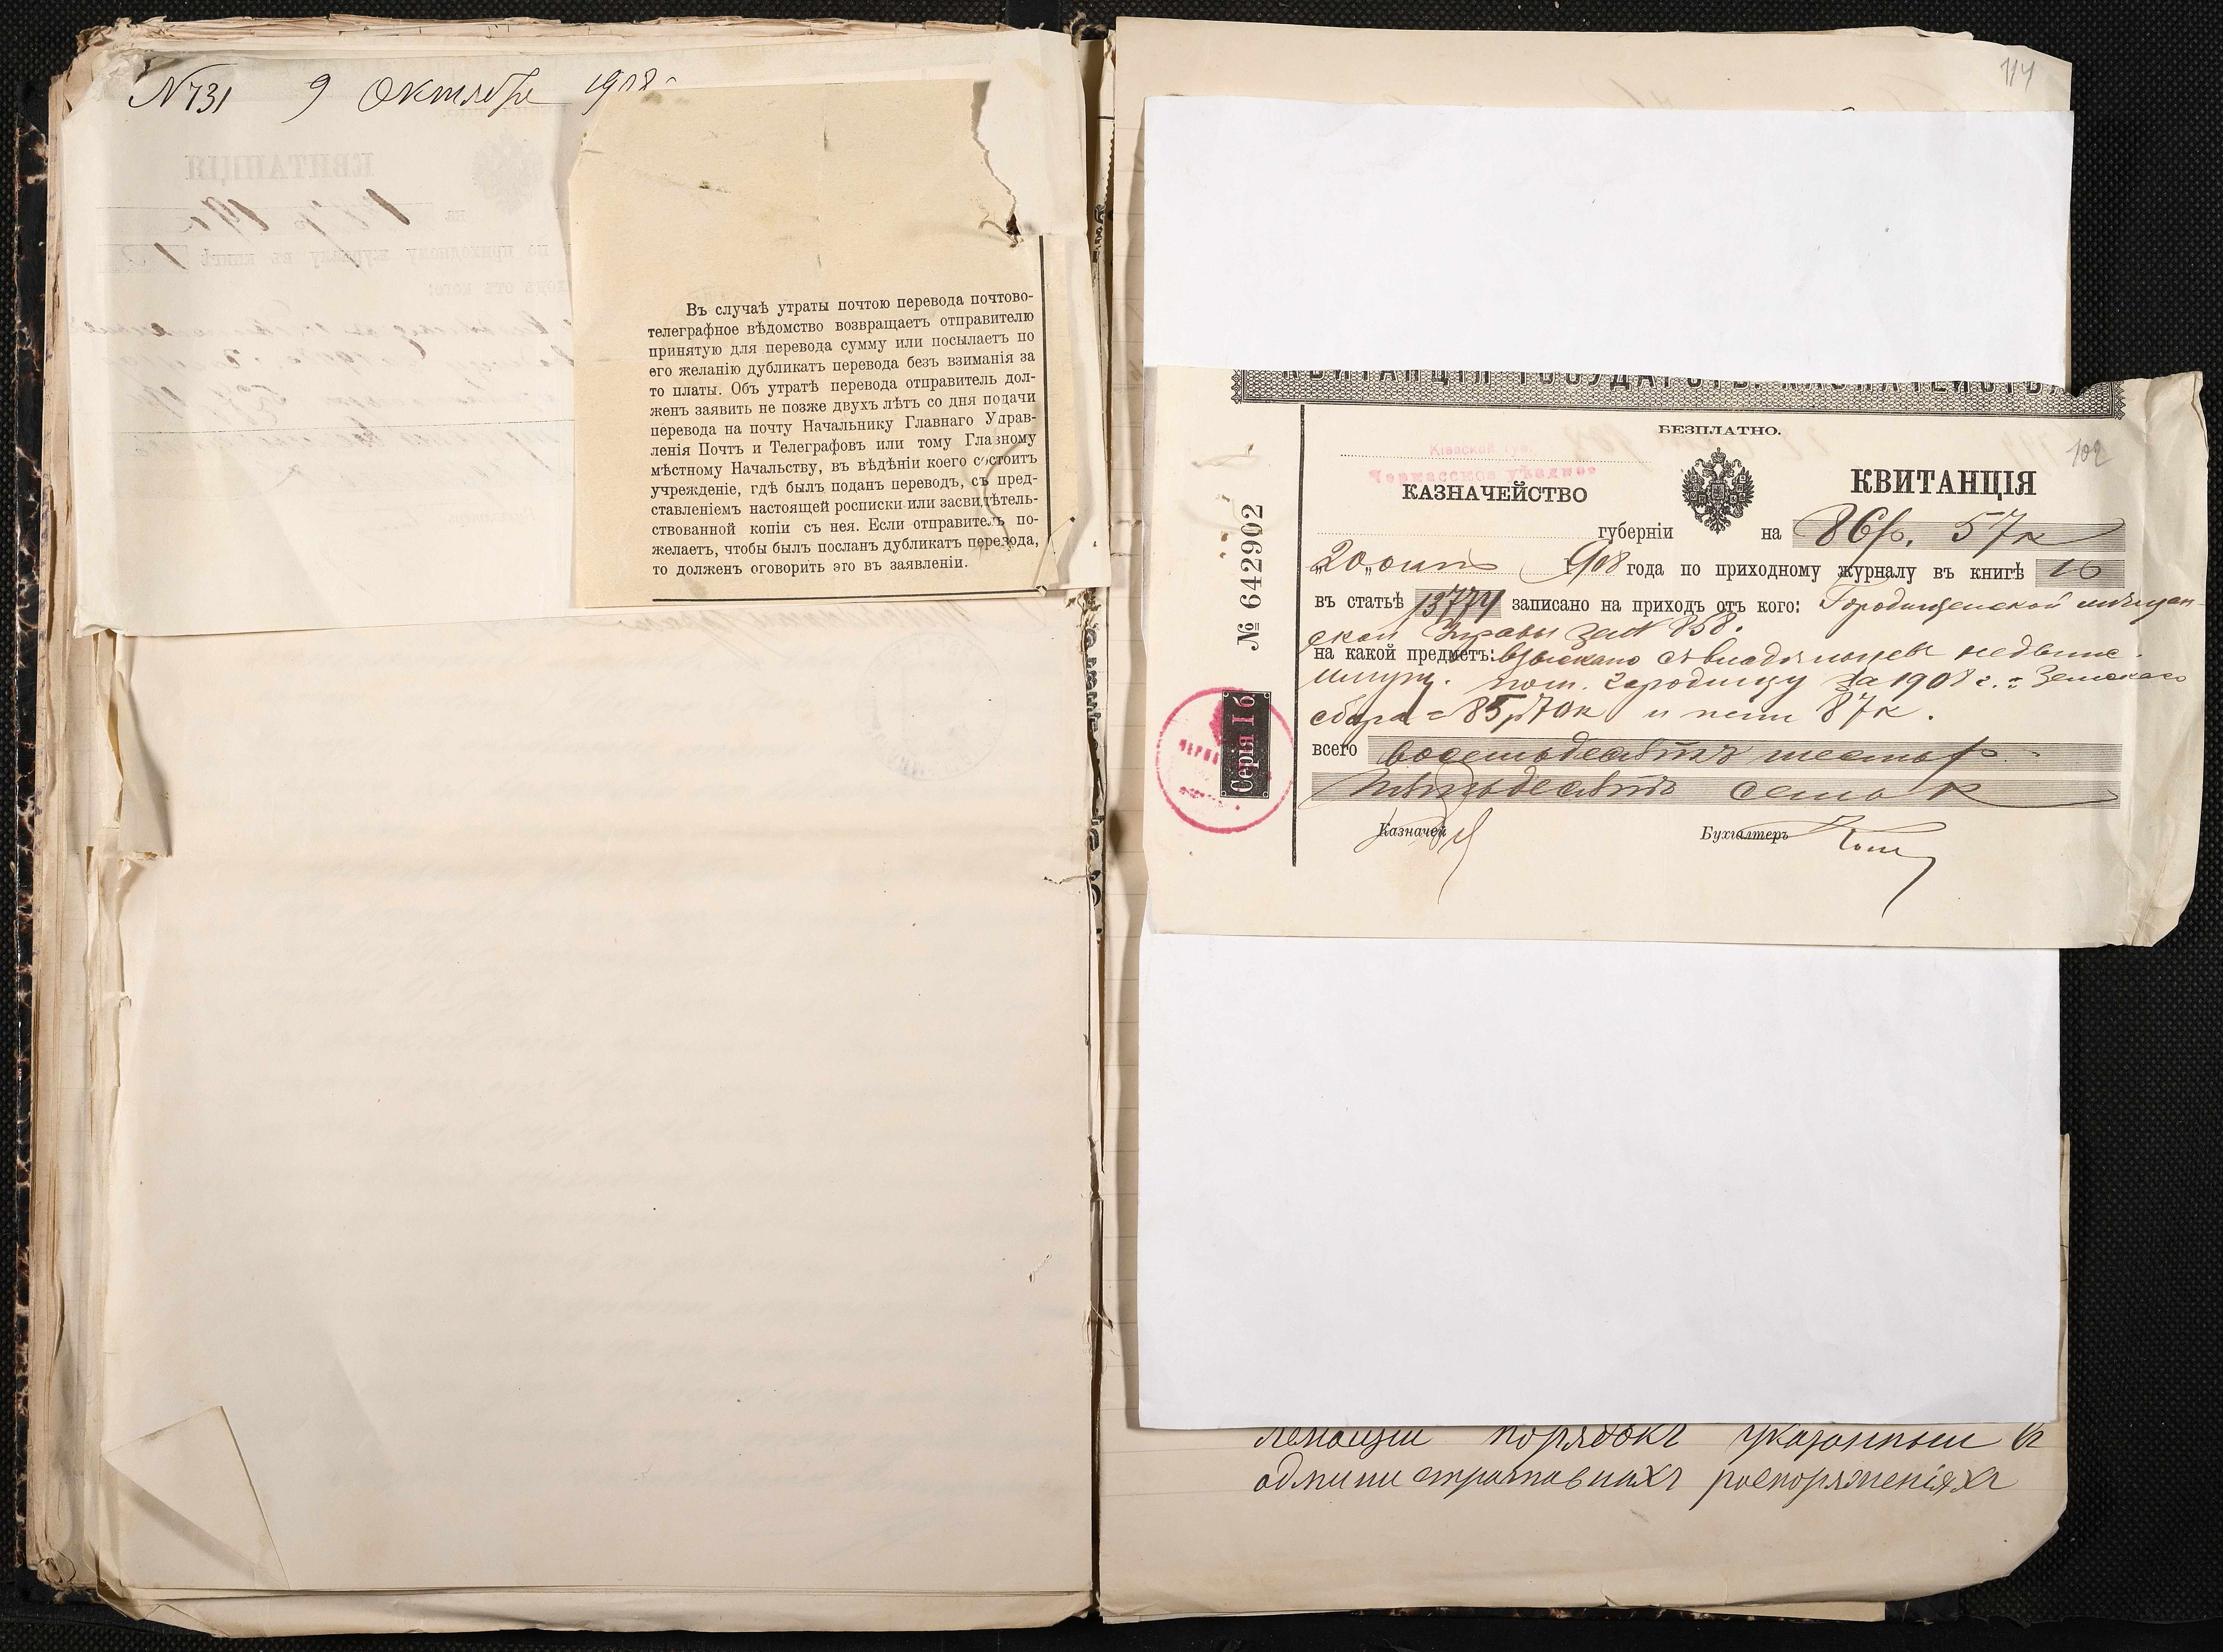 N 731 9 Октября 1908
Въ случаѣ утраты почтою перевода почтово-
телеграфное вѣдомство возвращаетъ отправителю
принятую для перевода сумму или посылаетъ по
его желанію дубликатъ перевода безъ взиманія за
то платы. Объ утратѣ перевода отправитель дол-
женъ заявить не позже двухъ лѣтъ со дня подачи
перевода на почту Начальнику Главнаго Управ-
ленія Почтъ и Телеграфовъ или тому Главному
мѣстному Начальству, въ вѣдѣніи коего состоитъ
учрежденіе, гдѣ былъ поданъ переводъ, съ пред-
ставленіемъ настоящей росписки или засвидѣтель-
ствованной копіи съ нея. Если отправитель по-
желаетъ, чтобы былъ посланъ дубликатъ перевода,
то долженъ оговорить это въ заявленіи.
114
КВИТАНЦІЯ ГОСУДАРСТВ. КАЗНАЧЕЙСТВА
БЕЗПЛАТНО.
102
Кіевской губ.
Черкасское уѣздное
КАЗНАЧЕЙСТВО
КВИТАНЦІЯ
губерніи на 86 р. 57 к
"20" окт 1908 года по приходному журналу въ книгѣ 16
въ статьѣ 13774 записано на приходъ отъ кого: Городищенской мѣщан-
ской Управы за N 858.
на какой предметъ: взыскано съ владѣльцевъ недвиж.
имущ. пом. Городищу за 1908 г. = Земскаго
сбора = 85 р 70 к и пени 87 к.
всего восемьдесятъ шесть р.
пятьдесятъ семь к
Казначей
Бухгалтеръ
№ 642902
Серія I б
порядокъ указанный въ
административныхъ распоряженіяхъ